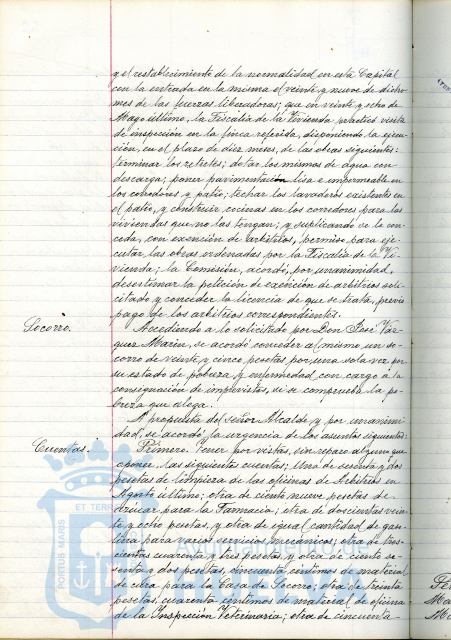 y el restablecimiento de la normalidad en esta Capital
con la entrada en la misma el veinte y nueve de dicho
mes de las fuerzas liberadoras; que en veinte y ocho de
Mayo último, la Fiscalía de la Vivienda practicó visita
de inspección en la finca referida, disponiendo la ejecu-
ción, en el plazo de diez meses, de las obras siguientes:
terminar los retretes; dotar los mismos de agua con
descarga; poner pavimentación lisa e impermeable en
los corredores y patio; techar los lavaderos existentes en
el patio, y construir cocinas en los corredores para las
viviendas que no las tengan; y suplicando se le con-
ceda, con exención de arbitrios, permiso para eje-
cutar las obras ordenadas por la Fiscalía de la Vi-
vienda; la Comisión, acordó, por unanimidad,
desestimar la petición de exención de arbitrios soli-
citado y conceder la licencia de que se trata, previo
pago de los arbitrios correspondientes.
Socorro.
Accediendo a lo solicitado por Don José Váz-
quez Marín, se acordó conceder al mismo, un so-
corro de veinte y cinco pesetas, por una sola vez por
su estado de pobreza y enfermedad con cargo a la
consignación de imprevistos, si se comprueba la po-
breza que alega.
A propuesta del señor Alcalde y por unanimi-
dad, se acordó la urgencia de los asuntos siguientes:
Cuentas.
Primero. Tener por vistas, sin reparo alguno que
oponer, las siguientes cuentas; Una de sesenta y dos
pesetas de limpieza de las oficinas de Arbitrios en
Agosto último; otra de ciento nueve pesetas de
azúcar para la Farmacia; otra de doscientas vein-
te y ocho pesetas, y otra de igual cantidad de gaso-
lina para varios servicios mecánicos; otra de tres-
cientas cuarenta y tres pesetas, y otra de ciento se-
senta y dos pesetas, cincuenta céntimos de material
de cura para la Casa de Socorro; otra de treinta
pesetas, cuarenta céntimos de material de oficina
de la Inspección Veterinaria; otra de cincuenta
ET TERR
PORTUS MARIS